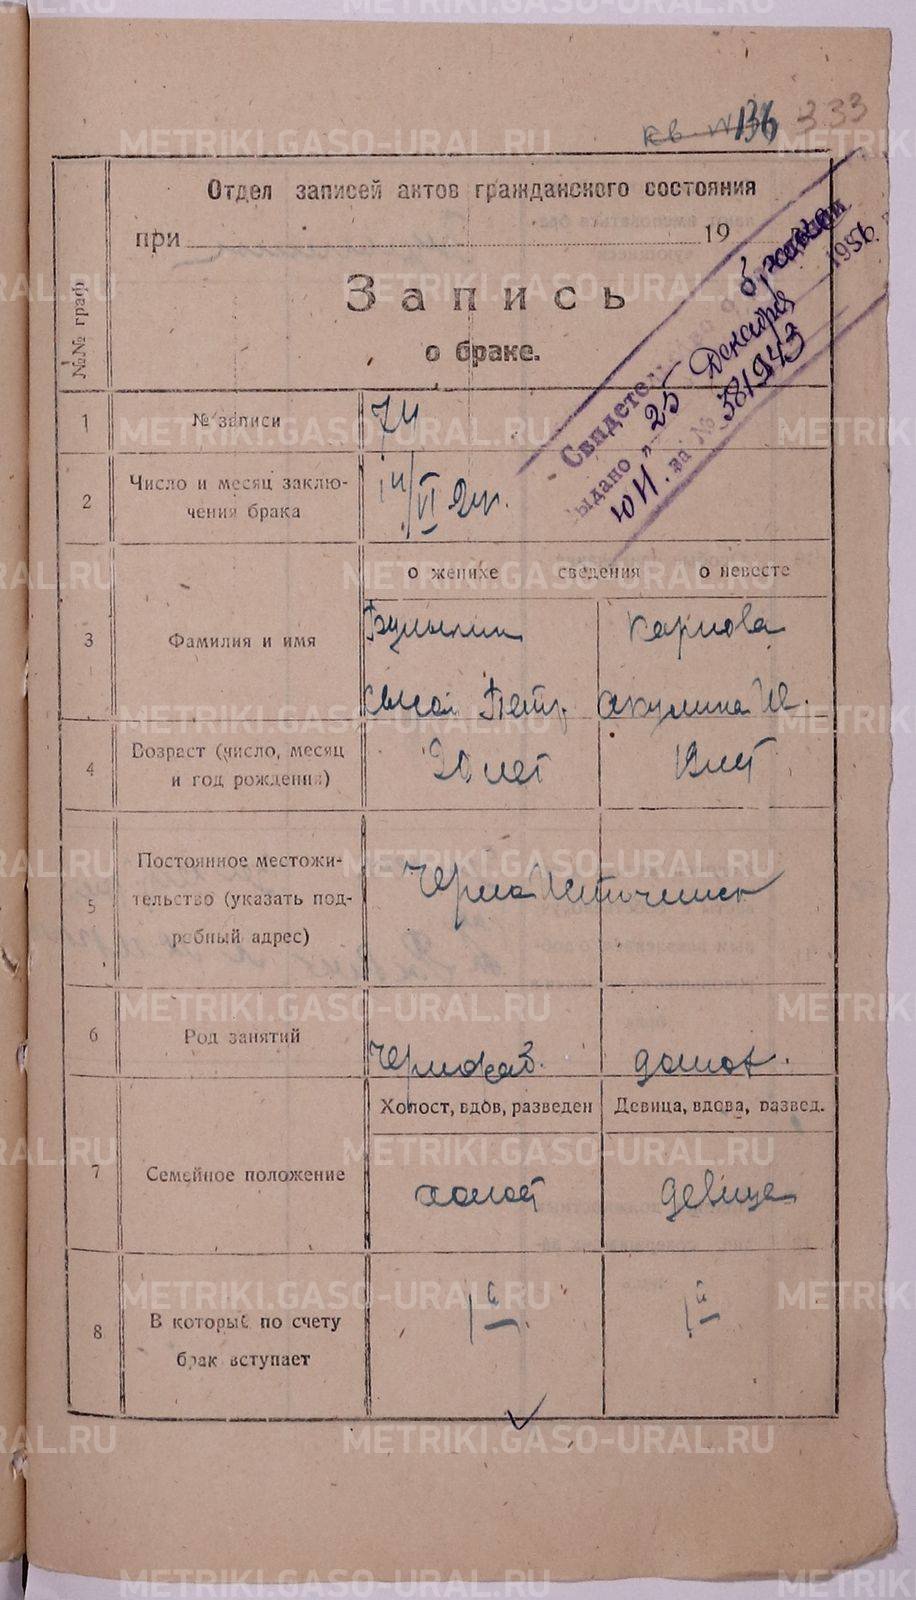 136 333
Отдел записей актов гражданского состояния
при 19
Запись
о браке.
Свидетельство о браке
Выдано „25 Декабря 1956.
ЮИ. за № 381943
№№ граф
1 № записи 74
2 Число и месяц заклю-
чения брака
о женихе сведения о невесте
3 Фамилия и имя
Карпова
Петр. Акулина Ив.
4 Возраст (число, месяц
и год рождения)
20 лет лет
5 Постоянное местожи-
тельство (указать под-
робный адрес)
6 Род занятий
домох.
Холост, вдов, разведен Девица, вдова, развед.
7 Семейное положение
холост девица
8 В который по счету
брак вступает
1й 1й
METRIKI.GASO-URAL.RU